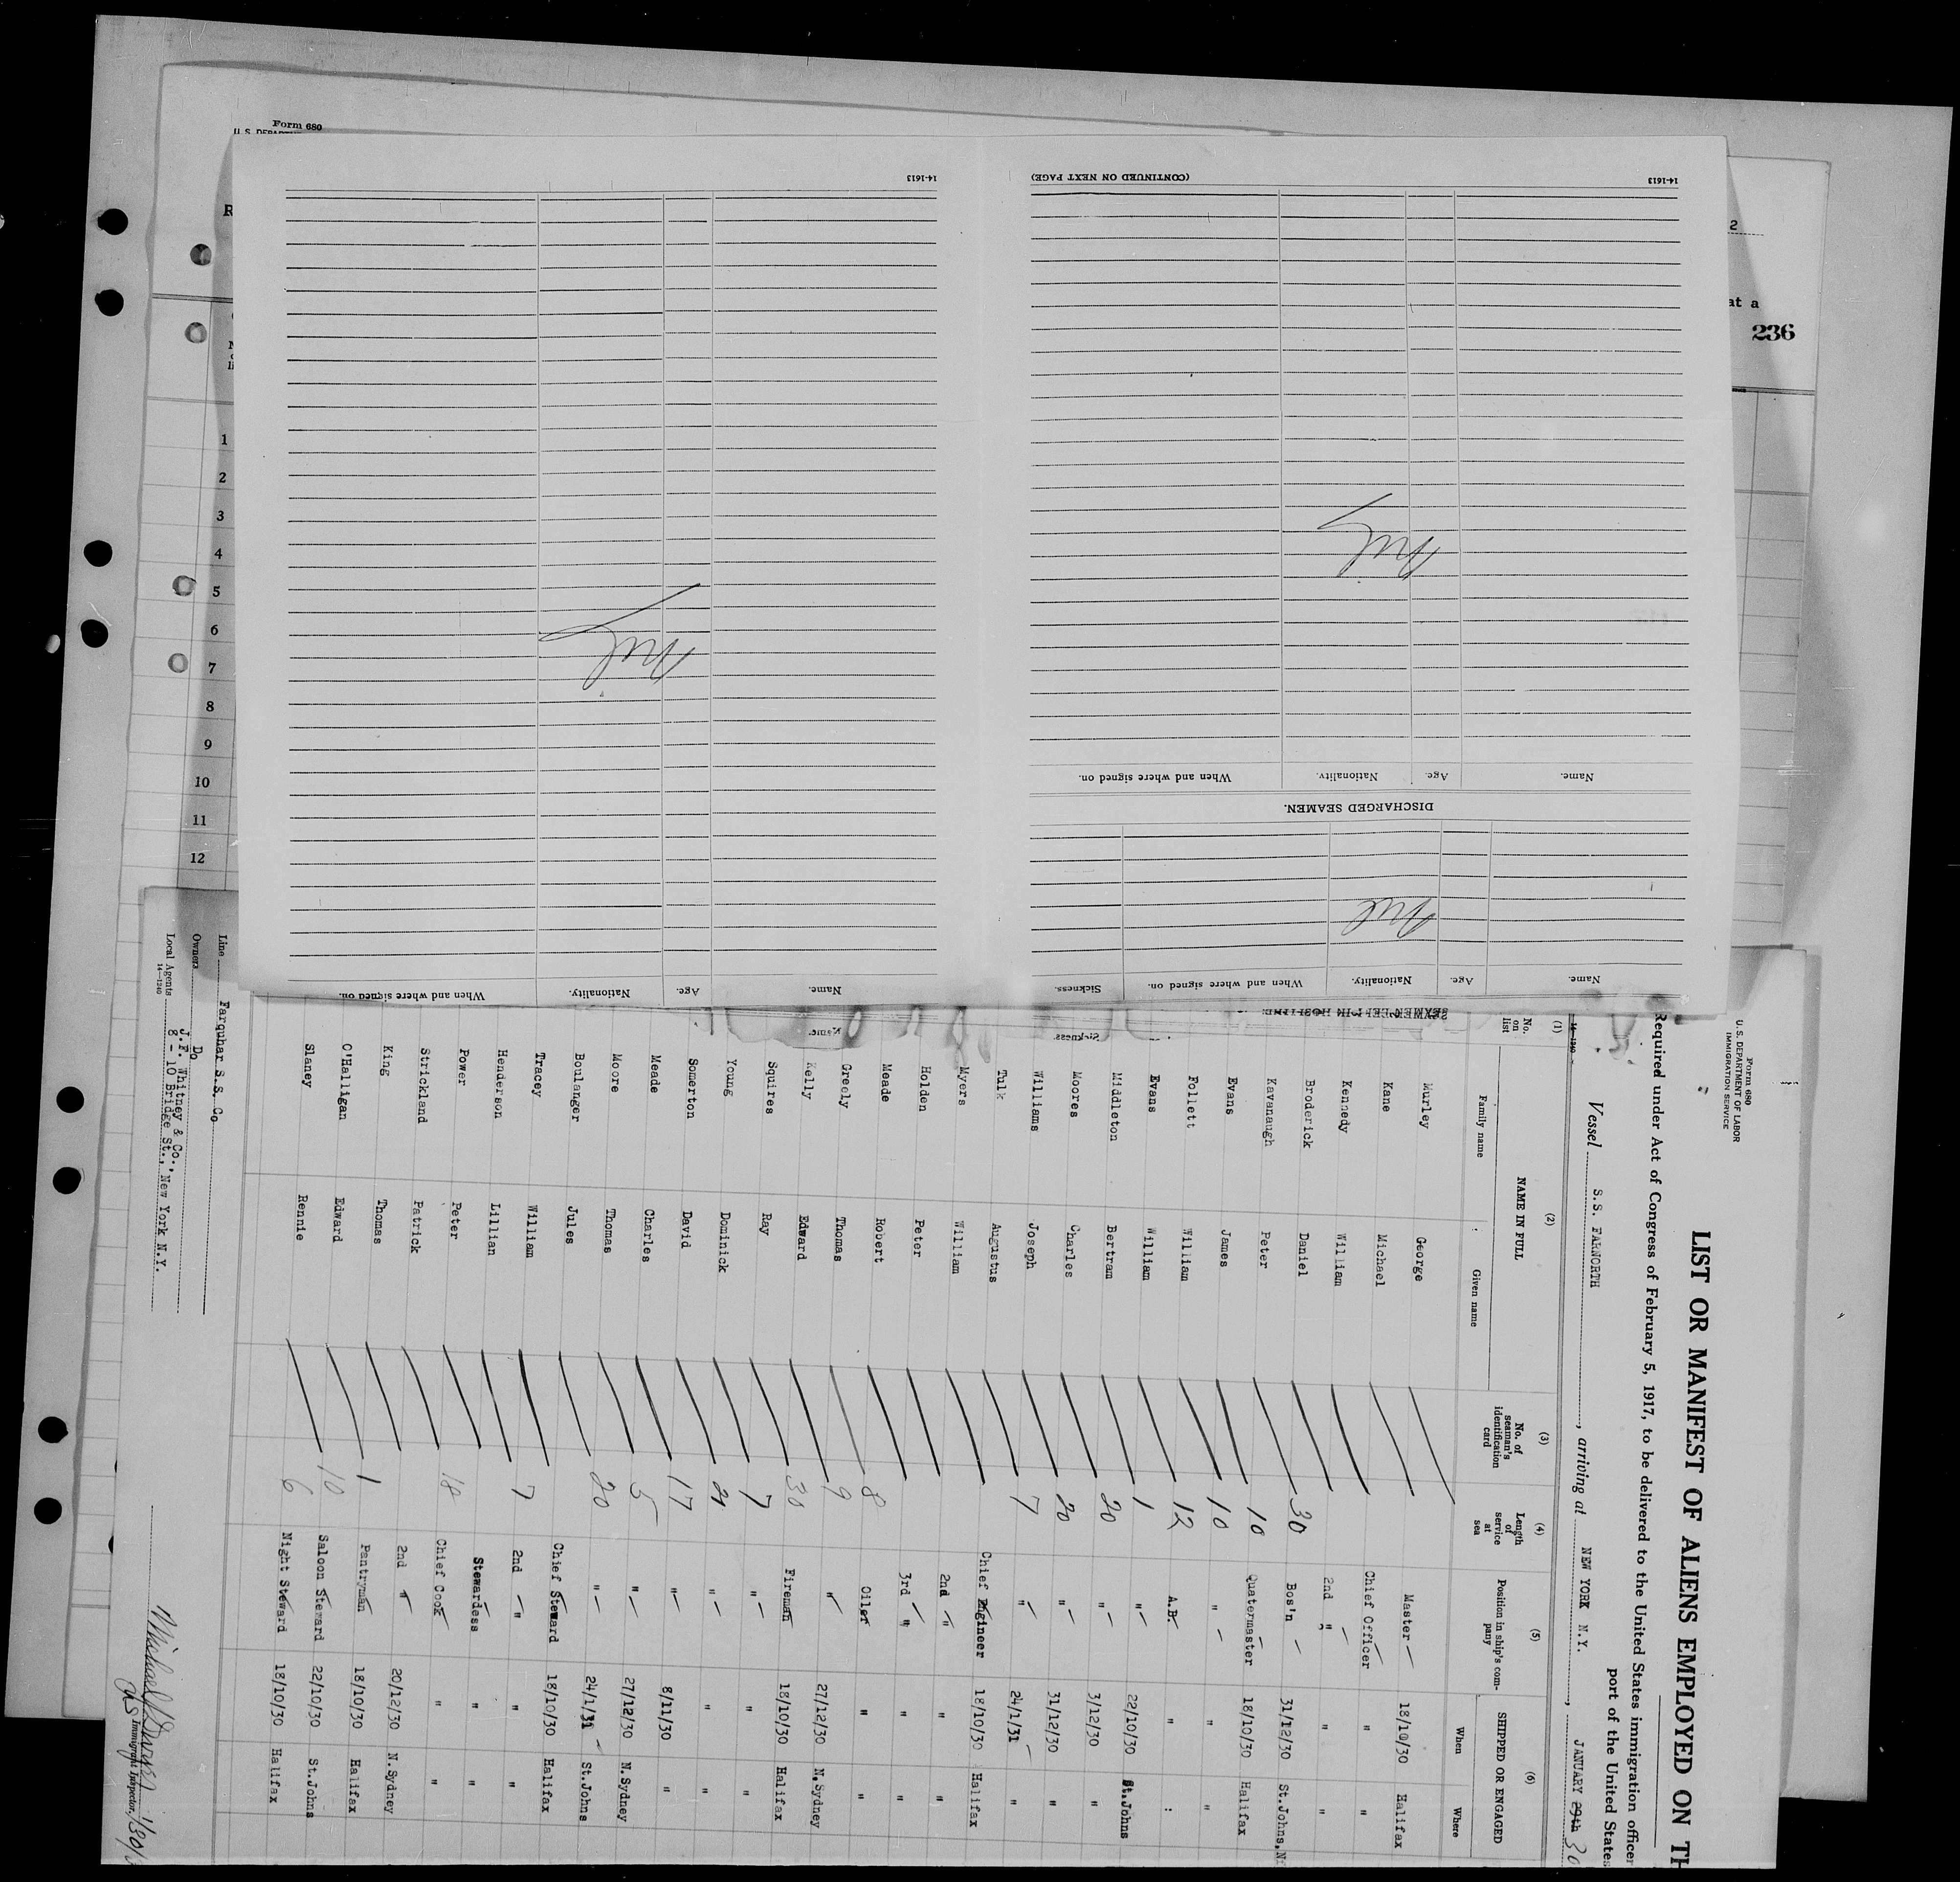 Form 680
U. S. DEPARTM
R
2
at a
236
1
2
3
4
5
6
7
8
9
10
11
12
14-1613
Name. Age. Nationality. When and where signed on. Sickness.
Nil
DISCHARGED SEAMEN.
Name. Age. Nationality. When and where signed on.
Nil
(CONTINUED ON NEXT PAGE)
14-1613
Name. Age. Nationality. When and where signed on.
Nil
Form 680
U. S. DEPARTMENT OF LABOR
IMMIGRATION SERVICE
LIST OR MANIFEST OF ALIENS EMPLOYED ON TH
Required under Act of Congress of February 5, 1917, to be delivered to the United States immigration officer
port of the United States
Vessel S.S. FARNORTH, arriving at NEW YORK N.Y., JANUARY 29th 30
14-1240
(1) (2) (3) (4) (5) (6)
No. on list NAME IN FULL No. of seaman's identification card Length of service at sea Position in ship's company SHIPPED OR ENGAGED
Family name Given name When Where
Murley George Master 18/10/30 Halifax
Kane Michael Chief Officer " "
Kennedy William 2nd " " "
Broderick Daniel 30 Bos'n 31/12/30 St.Johns,N
Kavanaugh Peter 10 Quatermaster 18/10/30 Halifax
Evans James 10 " " "
Follett William 12 A.B. " :
Evans William 1 " 22/10/30 St.Johns
Middleton Bertram 20 " 3/12/30 "
Moores Charles 20 " 31/12/30 "
Williams Joseph 7 " 24/1/31 "
Tulk Augustus Chief Engineer 18/10/30 Halifax
Myers William 2nd " " "
Holden Peter 3rd " " "
Meade Robert 8 Oiler " "
Greely Thomas 9 " 27/12/30 N.Sydney
Kelly Edward 30 Fireman 18/10/30 Halifax
Squires Ray 7 " " "
Young Dominick 21 " " "
Somerton David 17 " 8/11/30 "
Meade Charles 5 " 27/12/30 N.Sydney
Moore Thomas 20 " 24/1/31 St.Johns
Boulanger Jules Chief Steward 18/10/30 Halifax
Tracey William 7 2nd " " "
Henderson Lillian Stewardess " "
Power Peter 18 Chief Cook " "
Strickland Patrick 2nd " 20/12/30 N.Sydney
King Thomas 1 Pantryman 18/10/30 Halifax
O'Halligan Edward 10 Saloon Steward 22/10/30 St.Johns
Slaney Rennie 6 Night Steward 18/10/30 Halifax
Line Farquhar S.S. Co
Owners Do
Local Agents J.F. Whitney & Co.,
8 - 10 Bridge St., New York N.Y.
14-1240
Immigrant Inspector. 1/30/